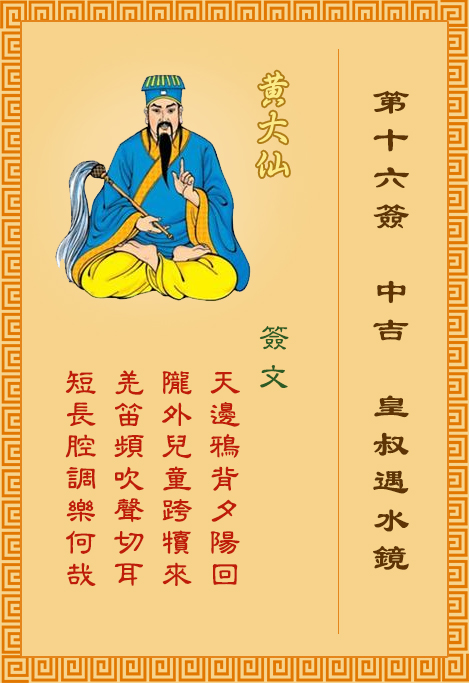 第十六簽 中吉 皇叔遇水鏡
黃大仙
簽文
天邊鴉背夕陽回
隴外兒童跨犢來
羌笛頻吹聲切耳
短長腔調樂何哉